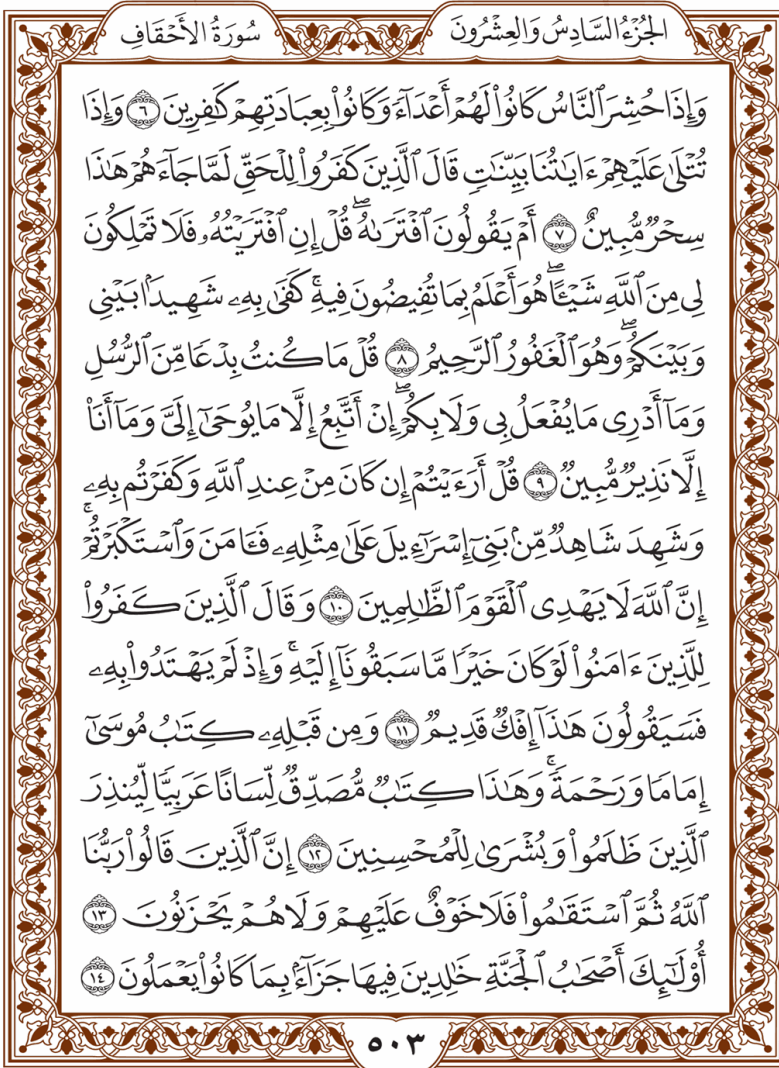 الجُزْءُ السَّادِسُ وَالعِشْرُونَ
سُورَةُ الأَحْقَافِ
وَإِذَا حُشِرَ ٱلنَّاسُ كَانُوا۟ لَهُمْ أَعْدَآءً وَكَانُوا۟ بِعِبَادَتِهِمْ كَـٰفِرِينَ ٦ وَإِذَا
تُتْلَىٰ عَلَيْهِمْ ءَايَـٰتُنَا بَيِّنَـٰتٍ قَالَ ٱلَّذِينَ كَفَرُوا۟ لِلْحَقِّ لَمَّا جَآءَهُمْ هَـٰذَا
سِحْرٌ مُّبِينٌ ٧ أَمْ يَقُولُونَ ٱفْتَرَىٰهُ ۖ قُلْ إِنِ ٱفْتَرَيْتُهُۥ فَلَا تَمْلِكُونَ
لِى مِنَ ٱللَّهِ شَيْـًٔا ۖ هُوَ أَعْلَمُ بِمَا تُفِيضُونَ فِيهِ ۚ كَفَىٰ بِهِۦ شَهِيدًۢا بَيْنِى
وَبَيْنَكُمْ ۖ وَهُوَ ٱلْغَفُورُ ٱلرَّحِيمُ ٨ قُلْ مَا كُنتُ بِدْعًا مِّنَ ٱلرُّسُلِ
وَمَآ أَدْرِى مَا يُفْعَلُ بِى وَلَا بِكُمْ ۖ إِنْ أَتَّبِعُ إِلَّا مَا يُوحَىٰٓ إِلَىَّ وَمَآ أَنَا۠
إِلَّا نَذِيرٌ مُّبِينٌ ٩ قُلْ أَرَءَيْتُمْ إِن كَانَ مِنْ عِندِ ٱللَّهِ وَكَفَرْتُم بِهِۦ
وَشَهِدَ شَاهِدٌ مِّنۢ بَنِىٓ إِسْرَٰٓءِيلَ عَلَىٰ مِثْلِهِۦ فَـَٔامَنَ وَٱسْتَكْبَرْتُمْ ۚ
إِنَّ ٱللَّهَ لَا يَهْدِى ٱلْقَوْمَ ٱلظَّـٰلِمِينَ ١٠ وَقَالَ ٱلَّذِينَ كَفَرُوا۟
لِلَّذِينَ ءَامَنُوا۟ لَوْ كَانَ خَيْرًا مَّا سَبَقُونَآ إِلَيْهِ ۚ وَإِذْ لَمْ يَهْتَدُوا۟ بِهِۦ
فَسَيَقُولُونَ هَـٰذَآ إِفْكٌ قَدِيمٌ ١١ وَمِن قَبْلِهِۦ كِتَـٰبُ مُوسَىٰٓ
إِمَامًا وَرَحْمَةً ۚ وَهَـٰذَا كِتَـٰبٌ مُّصَدِّقٌ لِّسَانًا عَرَبِيًّا لِّيُنذِرَ
ٱلَّذِينَ ظَلَمُوا۟ وَبُشْرَىٰ لِلْمُحْسِنِينَ ١٢ إِنَّ ٱلَّذِينَ قَالُوا۟ رَبُّنَا
ٱللَّهُ ثُمَّ ٱسْتَقَـٰمُوا۟ فَلَا خَوْفٌ عَلَيْهِمْ وَلَا هُمْ يَحْزَنُونَ ١٣
أُو۟لَـٰٓئِكَ أَصْحَـٰبُ ٱلْجَنَّةِ خَـٰلِدِينَ فِيهَا جَزَآءًۢ بِمَا كَانُوا۟ يَعْمَلُونَ ١٤
٥٠٣